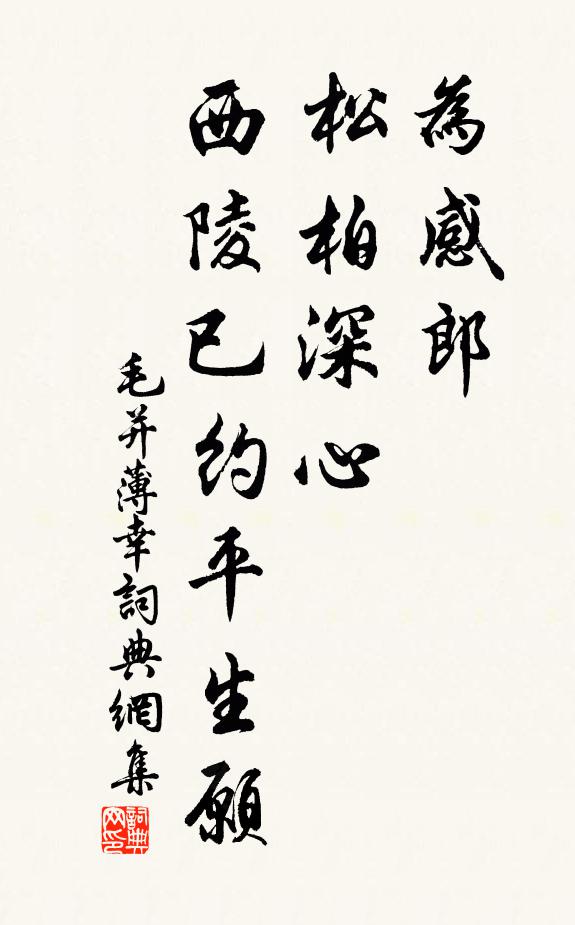 為感郎
松柏深心
西陵已約平生願
毛幵薄幸詞典網集
詞典网印